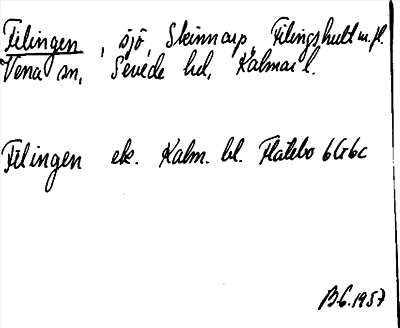 Filingen, sjö, Skinnarp, Filingshult m.fl.
Vena sn, Sevede hd, Kalmar l.
Filingen ek. Kalm. bl. Flatebo 6G6c
B.G. 1957